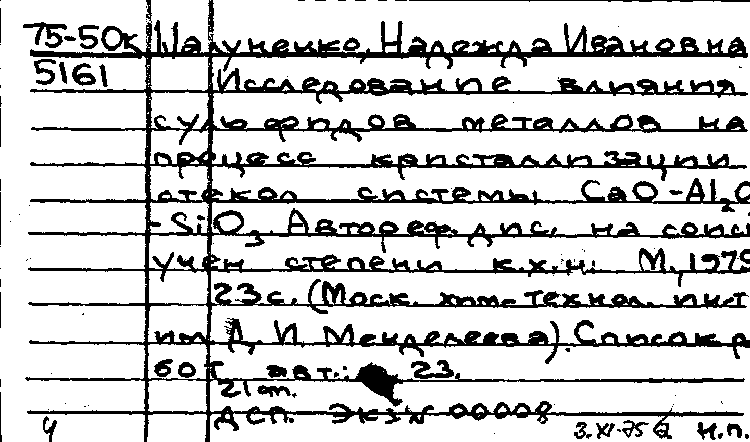 75-50к Налуненко, Надежда Ивановна
5161 Исследование влияния
сульфидов металлов на
процесс кристаллизации
стекол системы CaO-Al₂O
-SiO₃. Автореф. дис. на соиск
учен степени к.х.н. М., 1975
23с. (Моск. хим-технол. ин-т
им Д. И. Менделеева). Список р
бот авт.: с. 23.
21 см.
ДСП. Экз № 00008
3.XI-75 н.п.